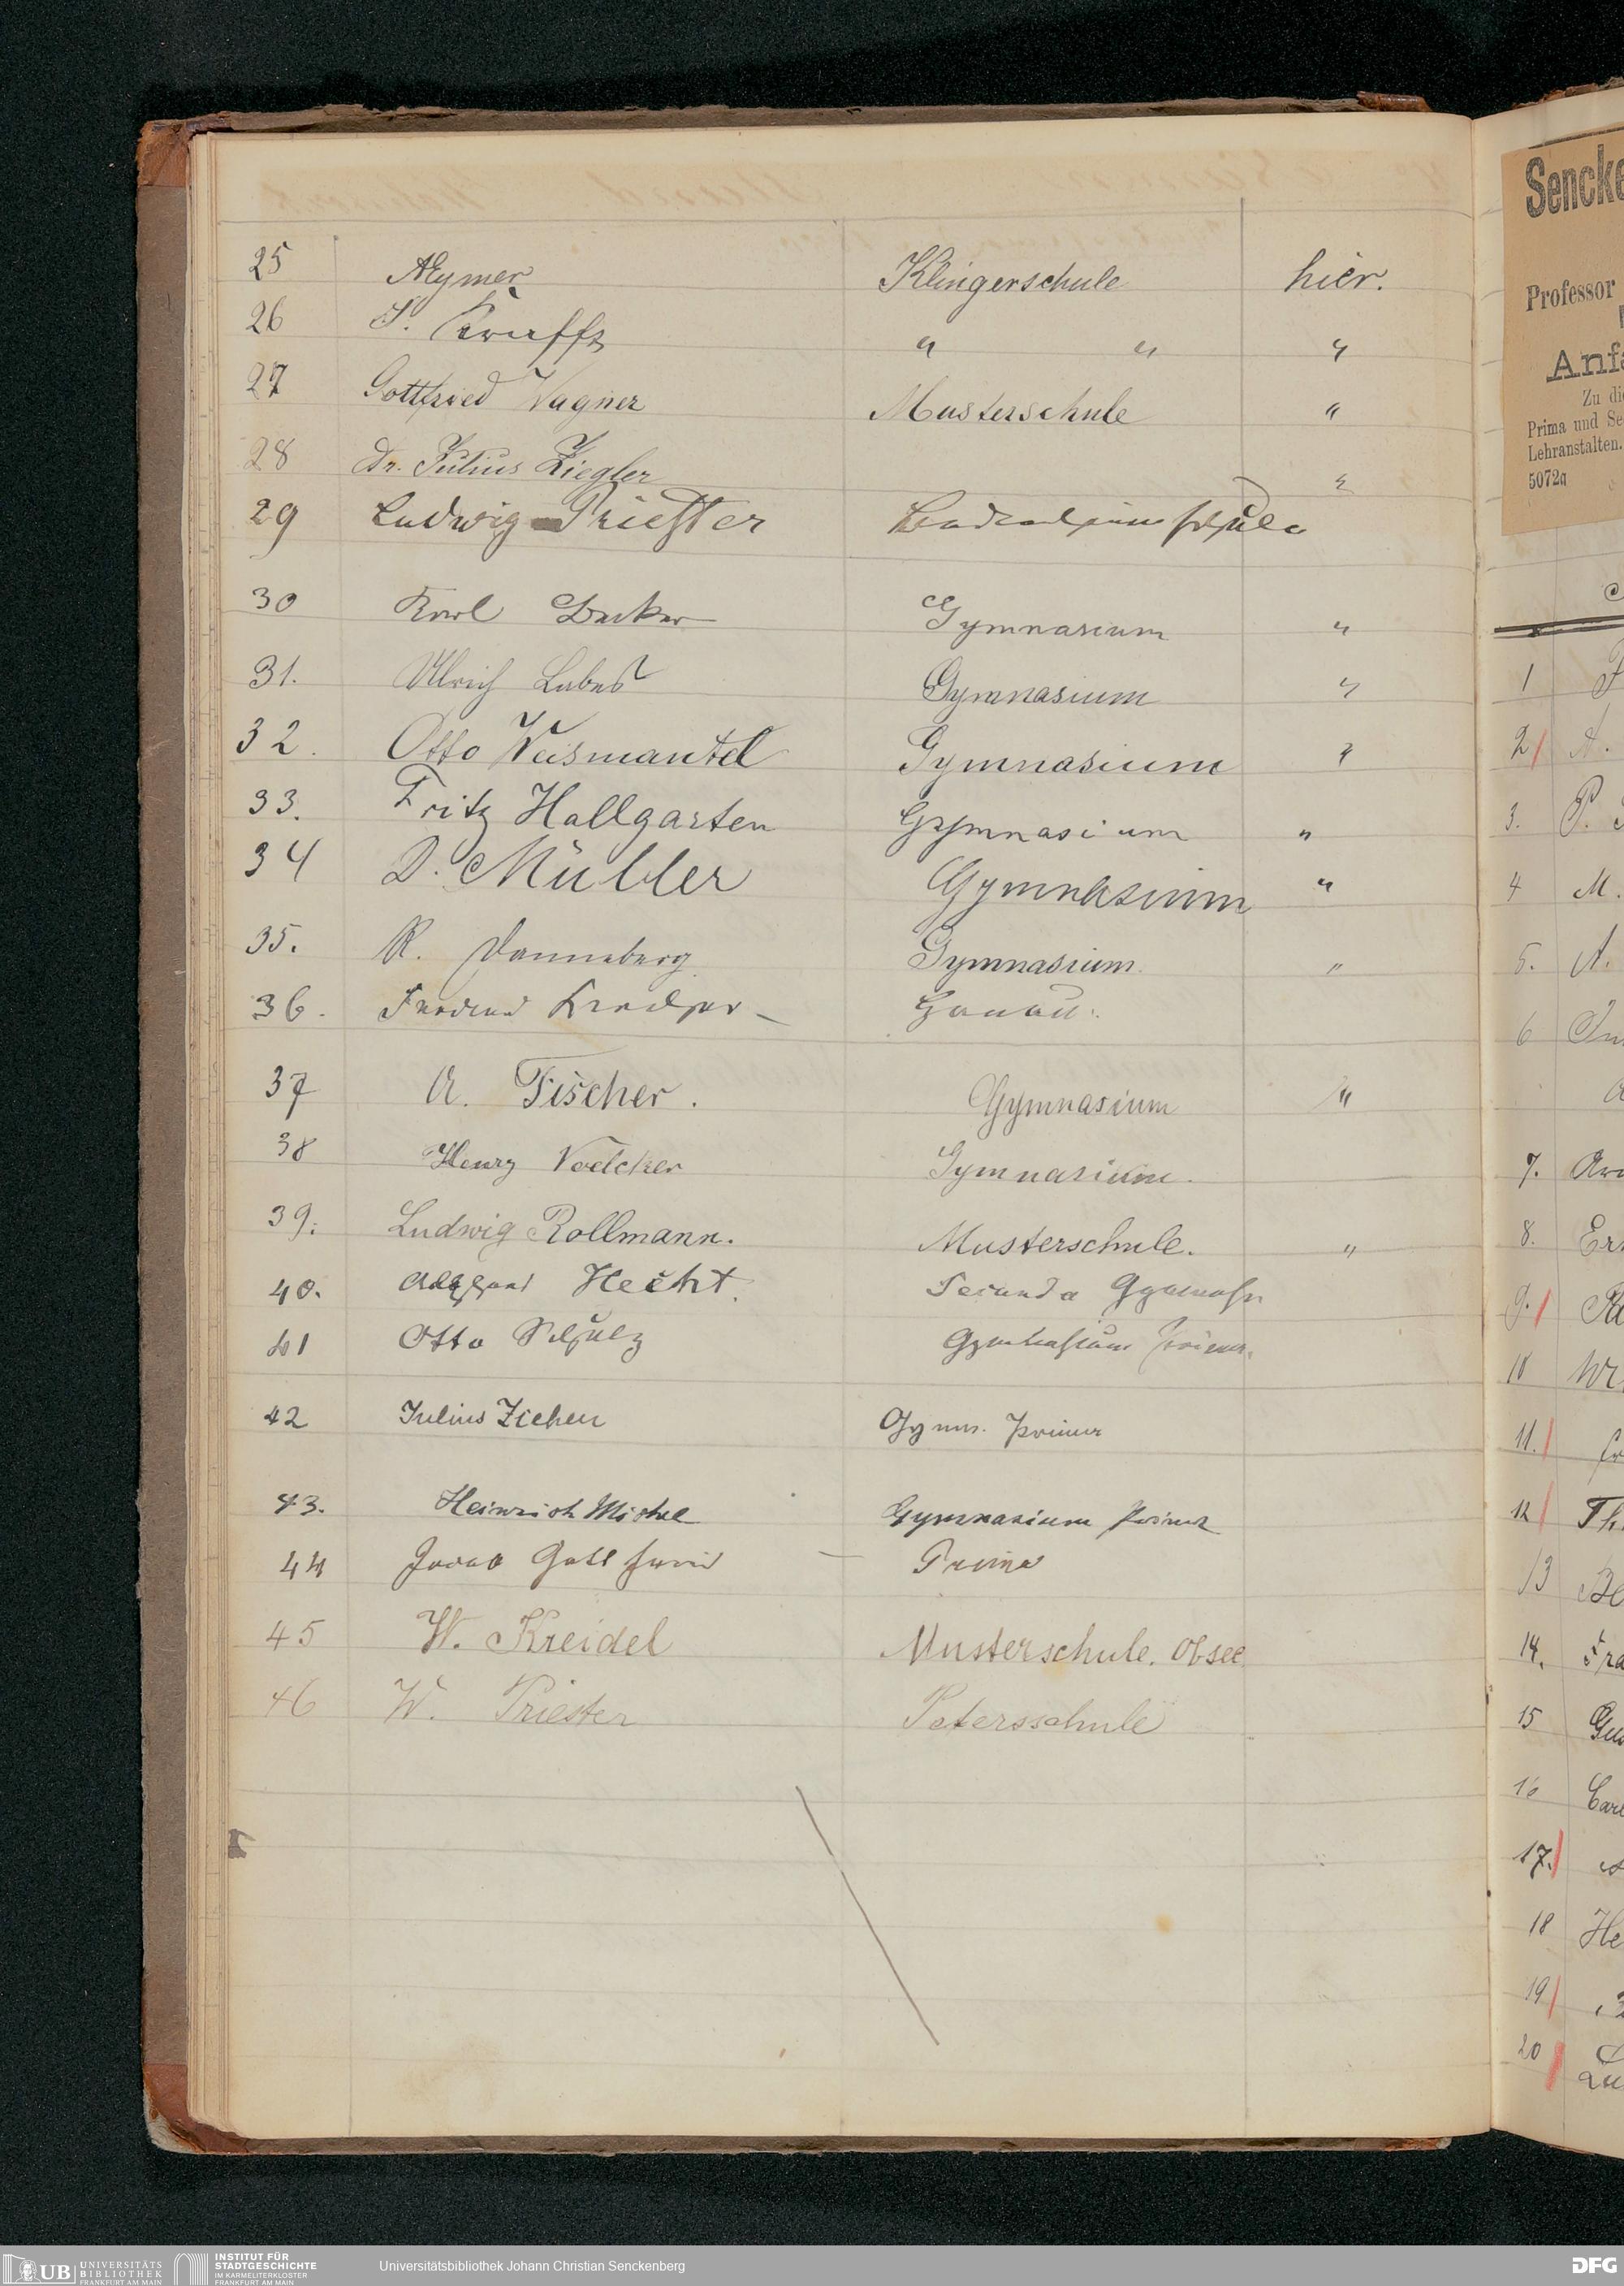 25 Alzymer Klingerschule hier.
26 S. Krafft " " "
27 Gottfried Wagner Musterschule "
28 Dr. Julius Ziegler "
29 Ludwig Priester
30 Karl Becker Gymnasium "
31. Ulrich Labes Gymnasium "
32. Otto Weismantel Gymnasium "
33. Fritz Hallgarten Gymnasium "
34 D. Müller Gymnasium "
35. R. Danneberg Gymnasium. "
36. Hanau.
37 A. Fischer. Gymnasium "
38 Henry Voelcker Gymnasium.
39. Ludwig Rollmann. Musterschule. "
40. Hecht. Secunda
41 Otto Schulz Gymnasium Primar.
42 Julius Ziehen Gymn. Primar
43. Heinrich Michel Gymnasium Primar
44 Jacob Gottfried — Prima
45 W. Kreidel Musterschule. Obsec
46 W. Priester Petersschule
Sencke
Professor
Anfa
Zu di
Prima und Se
Lehranstalten.
5072a
1
2
3. P.
4 M.
5. A.
6
7.
8.
9.
10
11.
12 Th
13
14. Fra
15
16 Carl
17.
18 He
19
20
UB UNIVERSITÄTS
BIBLIOTHEK
FRANKFURT AM MAIN
INSTITUT FÜR
STADTGESCHICHTE
IM KARMELITERKLOSTER
FRANKFURT AM MAIN
Universitätsbibliothek Johann Christian Senckenberg
DFG